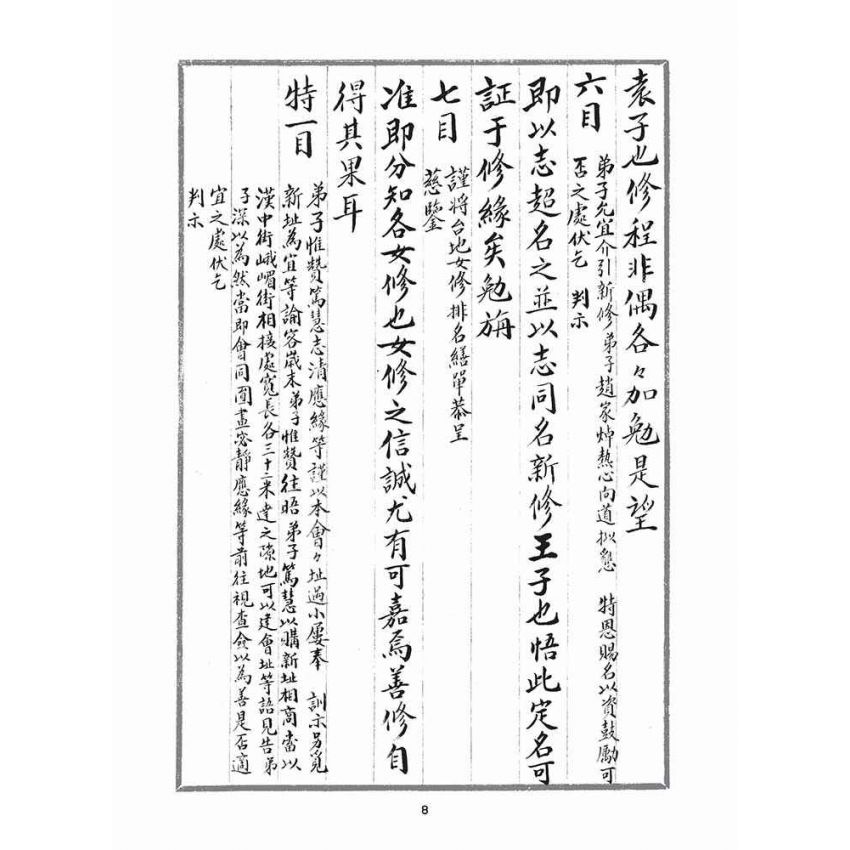 袁子也修程非偶各々加勉是望
六目
弟子允宜介引新修弟子趙家焯熱心向道拟懇　特恩賜名以資鼓勵可
否之處伏乞　判示
即以志超名之並以志同名新修王子也悟此定名可
証于修緣矣勉旃
七目
謹將台地女修排名繕單恭呈
慈鑒
准即分知各女修也女修之信誠尤有可嘉焉善修自
得其果耳
特一目
弟子惟贊篤慧志清應緣等謹以本會々址過小屢奉　訓示另覓
新址為宜等諭客歲末弟子惟贊往晤　弟子篤慧以購新址相商當以
漢中街峨嵋街相接處寬長各三十二米達之隙地可以建會址等語見告弟
子深以為然當即會同圓晝宓靜應緣等前往視查僉以為善是否適
宜之處伏乞
判示
8